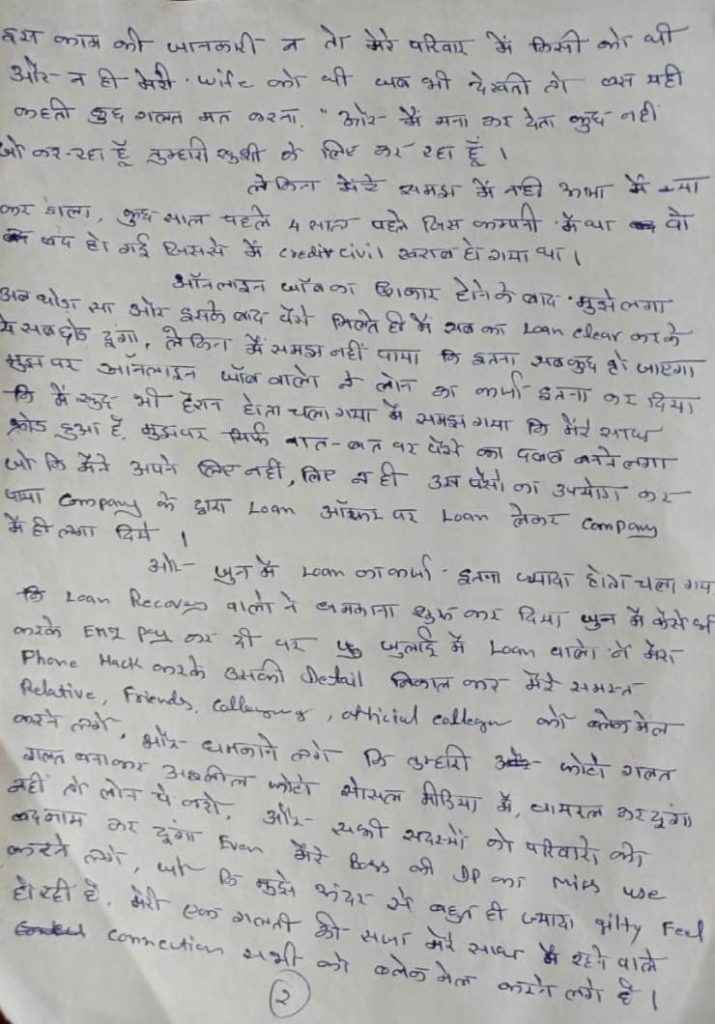 इस काम की जानकारी न तो मेरे परिवार में किसी को थी
और न ही मेरी wife को थी जब भी देखती तो बस यही
कहती कुछ गलत मत करना. "और मैं मना कर देता कुछ नहीं
जो कर रहा हूँ तुम्हारी खुशी के लिए कर रहा हूँ ।
लेकिन मेरे समझ में नहीं आया मैं क्या
कर डाला, कुछ साल पहले 4 साल पहले जिस कम्पनी में था वो
बंद हो गई जिससे में credit civil खराब हो गया था ।
ऑनलाइन जॉब का शिकार होने के बाद मुझे लगा
अब थोडा सा और इसके बाद पैसे मिलते ही मैं सब का Loan clear करके
ये सब छोड दूंगा, लेकिन मैं समझ नहीं पाया कि इतना सबकुछ हो जाएगा
मुझ पर ऑनलाइन जॉब वालो ने लोन का कर्जा इतना कर दिया
कि मैं खुद भी हैरान होता चला गया मैं समझ गया कि मेरे साथ
फ्रोड हुआ है. मुझपर सिर्फ बात-बात पर पैसे का दबाब बनने लगा
जो कि मैंने अपने लिए नहीं, लिए न ही उस पैसो का उपयोग कर
पाया Company के द्वारा Loan ऑफर पर Loan लेकर Company
में ही लगा दिये ।
और जुन में Loan का कर्जा इतना ज्यादा होता चला गया
कि Loan Recovery वालो ने धमकाना शुरू कर दिया जुन में कैसे भी
करके EMI Pay कर दी पर जुलाई में Loan वालो ने मेरा
Phone Hack करके उसकी Detail निकाल कर मेरे समस्त
Relative, Friends, Colleguys, official collegue को ब्लेकमेल
करने लगे, और धमकाने लगे कि तुम्हारी फोटो गलत
गलत बनाकर अश्लील फोटो सोसल मीडिया में, वायरल कर दूंगा
नहीं तो लोन पे करो, और सभी सदस्यों को परिवारो को
बदनाम कर दूंगा Even मेरे Boss की DP का miss use
करने लगे, जो कि मुझे अंदर से बहुत ही ज्यादा gilty Feel
हो रही है. मेरी एक गलती की सजा मेरे साथ में रहने वाले
connection सभी को ब्लेकमेल करने लगे है ।
2